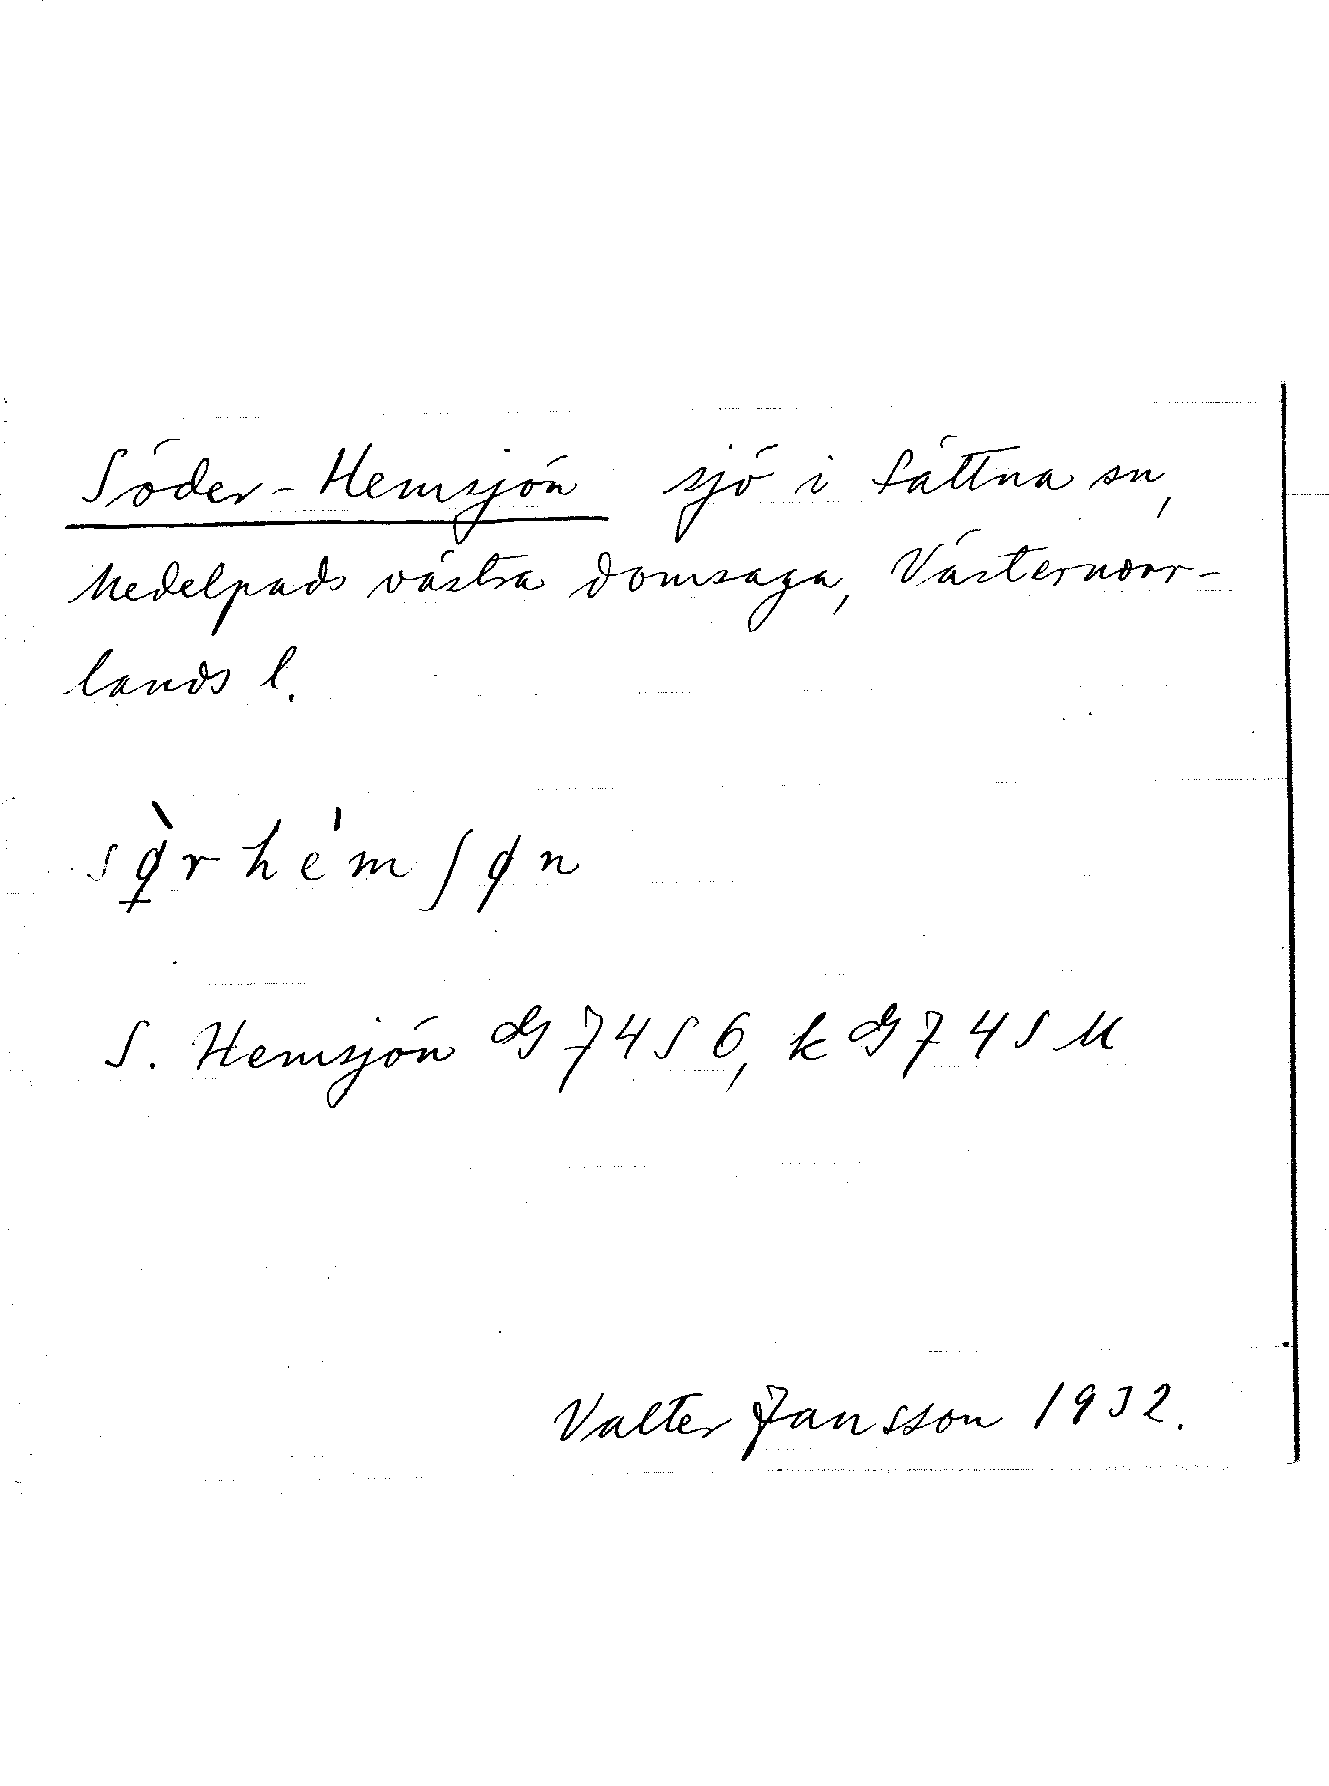 Söder-Hemsjön sjö i Sättna sn,
Medelpads västra domsaga, Västernorr-
lands l.
sø̱̀rhémʃøn
S. Hemsjön GS 74 S 6, k GS 74 S M
Valter Jansson 1932.